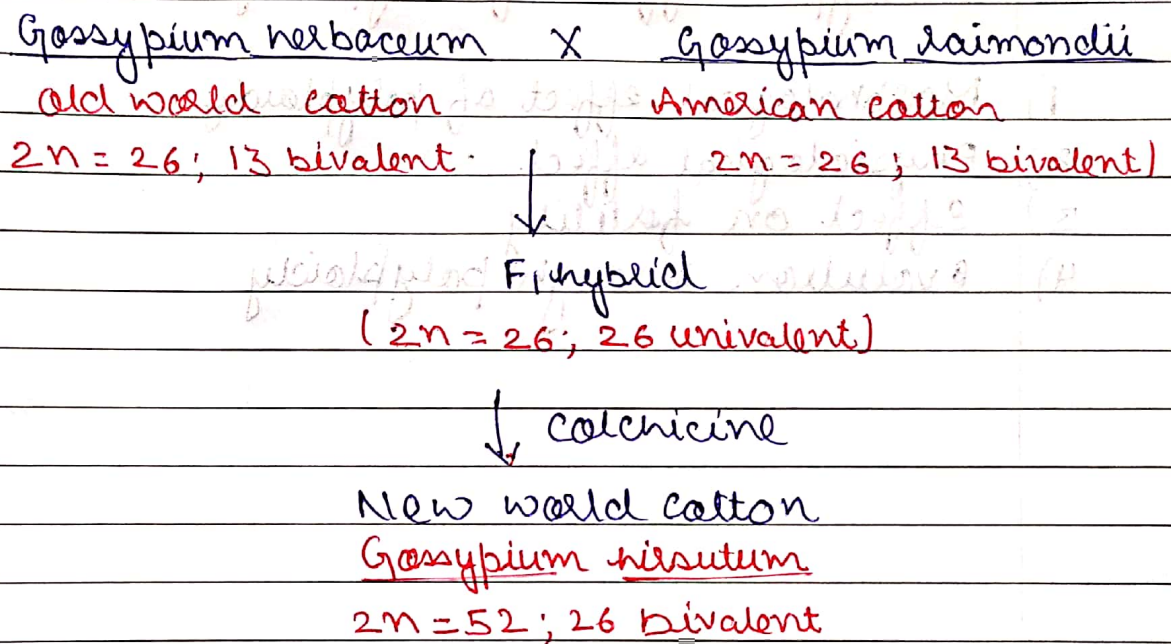 Gossypium herbaceum X Gossypium raimondii
old world cotton American cotton
2n = 26; 13 bivalent. 2n = 26; 13 bivalent)
F1 hybrid
(2n = 26; 26 univalent)
colchicine
New world cotton
Gossypium hirsutum
2n = 52; 26 bivalent